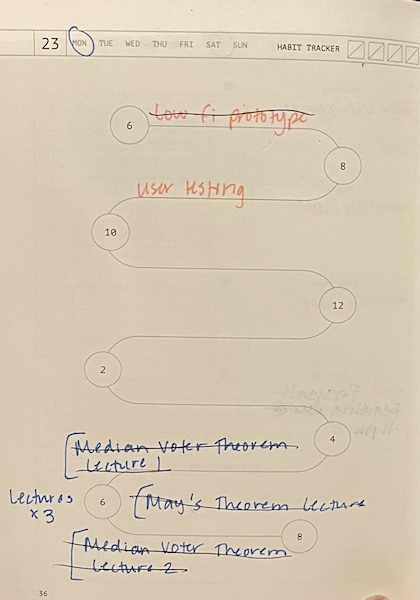 23 MON TUE WED THU FRI SAT SUN HABIT TRACKER
6 Low fi prototype
8
user testing
10
12
2
4
Median Voter Theorem
Lecture 1
Lectures
x 3
6 May's Theorem Lecture
8
Median Voter Theorem
Lecture 2
36